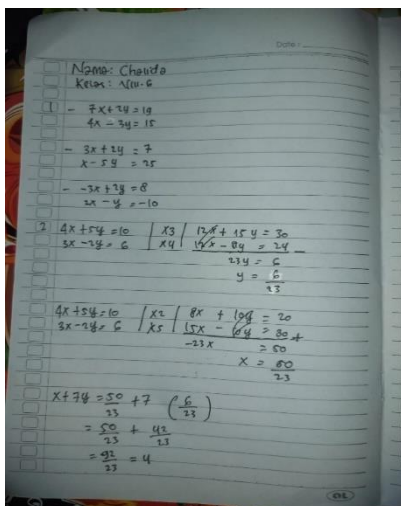 Date :
Nama: Chalida
Kelas: VIII-6
1 - 7x+2y=19
4x - 3y = 15
- 3x+2y = 7
x - 5y = 25
- -3x+2y = 8
2x - y = -10
2 4x+5y=10 | x3 | 12x + 15y = 30
3x-2y = 6 | x4 | 12x - 8y = 24 -
23y = 6
y = 6/23
4x+5y=10 | x2 | 8x + 10y = 20
3x-2y= 6 | x5 | 15x - 10y = 30 +
-23x = 50
x = 50/23
x+7y = 50/23 + 7 (6/23)
= 50/23 + 42/23
= 92/23 = 4